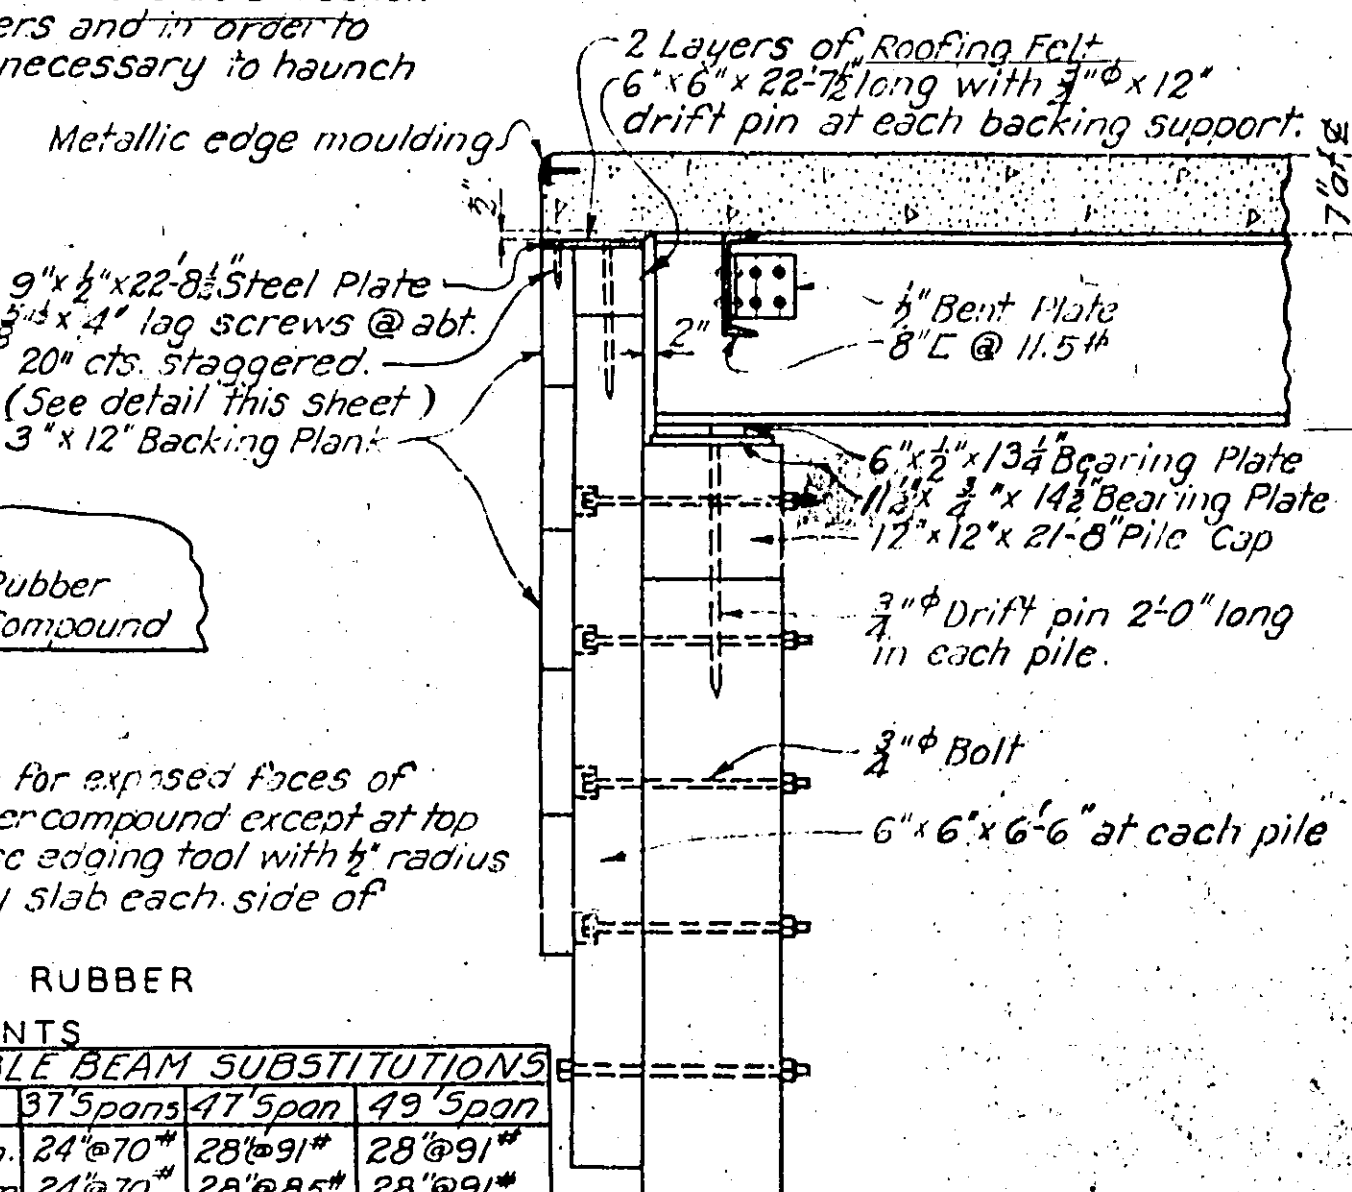 ers and in order to
necessary to haunch
2 Layers of Roofing Felt
6"x6"x 22'-7½" long with ¾"ϕ x 12"
drift pin at each backing support.
Metallic edge moulding
½"
7" at ℄
9"x½"x22'-8½" Steel Plate
⅝"ϕ x 4" lag screws @ abt.
20" cts. staggered.
(See detail this sheet)
3"x12" Backing Plank
2"
½" Bent Plate
8"[ @ 11.5#
6"x½"x13¼" Bearing Plate
11½"x ¾"x 14½" Bearing Plate
12"x12"x 21'-8" Pile Cap
Rubber
Compound
¾"ϕ Drift pin 2'-0" long
in each pile.
¾"ϕ Bolt
6"x6"x6'-6" at each pile
for exposed faces of
er compound except at top
edging tool with ½" radius
slab each side of
RUBBER
NTS
LE BEAM SUBSTITUTIONS
37' Spans 47' Span 49' Span
24"@70# 28"@91# 28"@91#
24"@70# 28"@85# 28"@91#